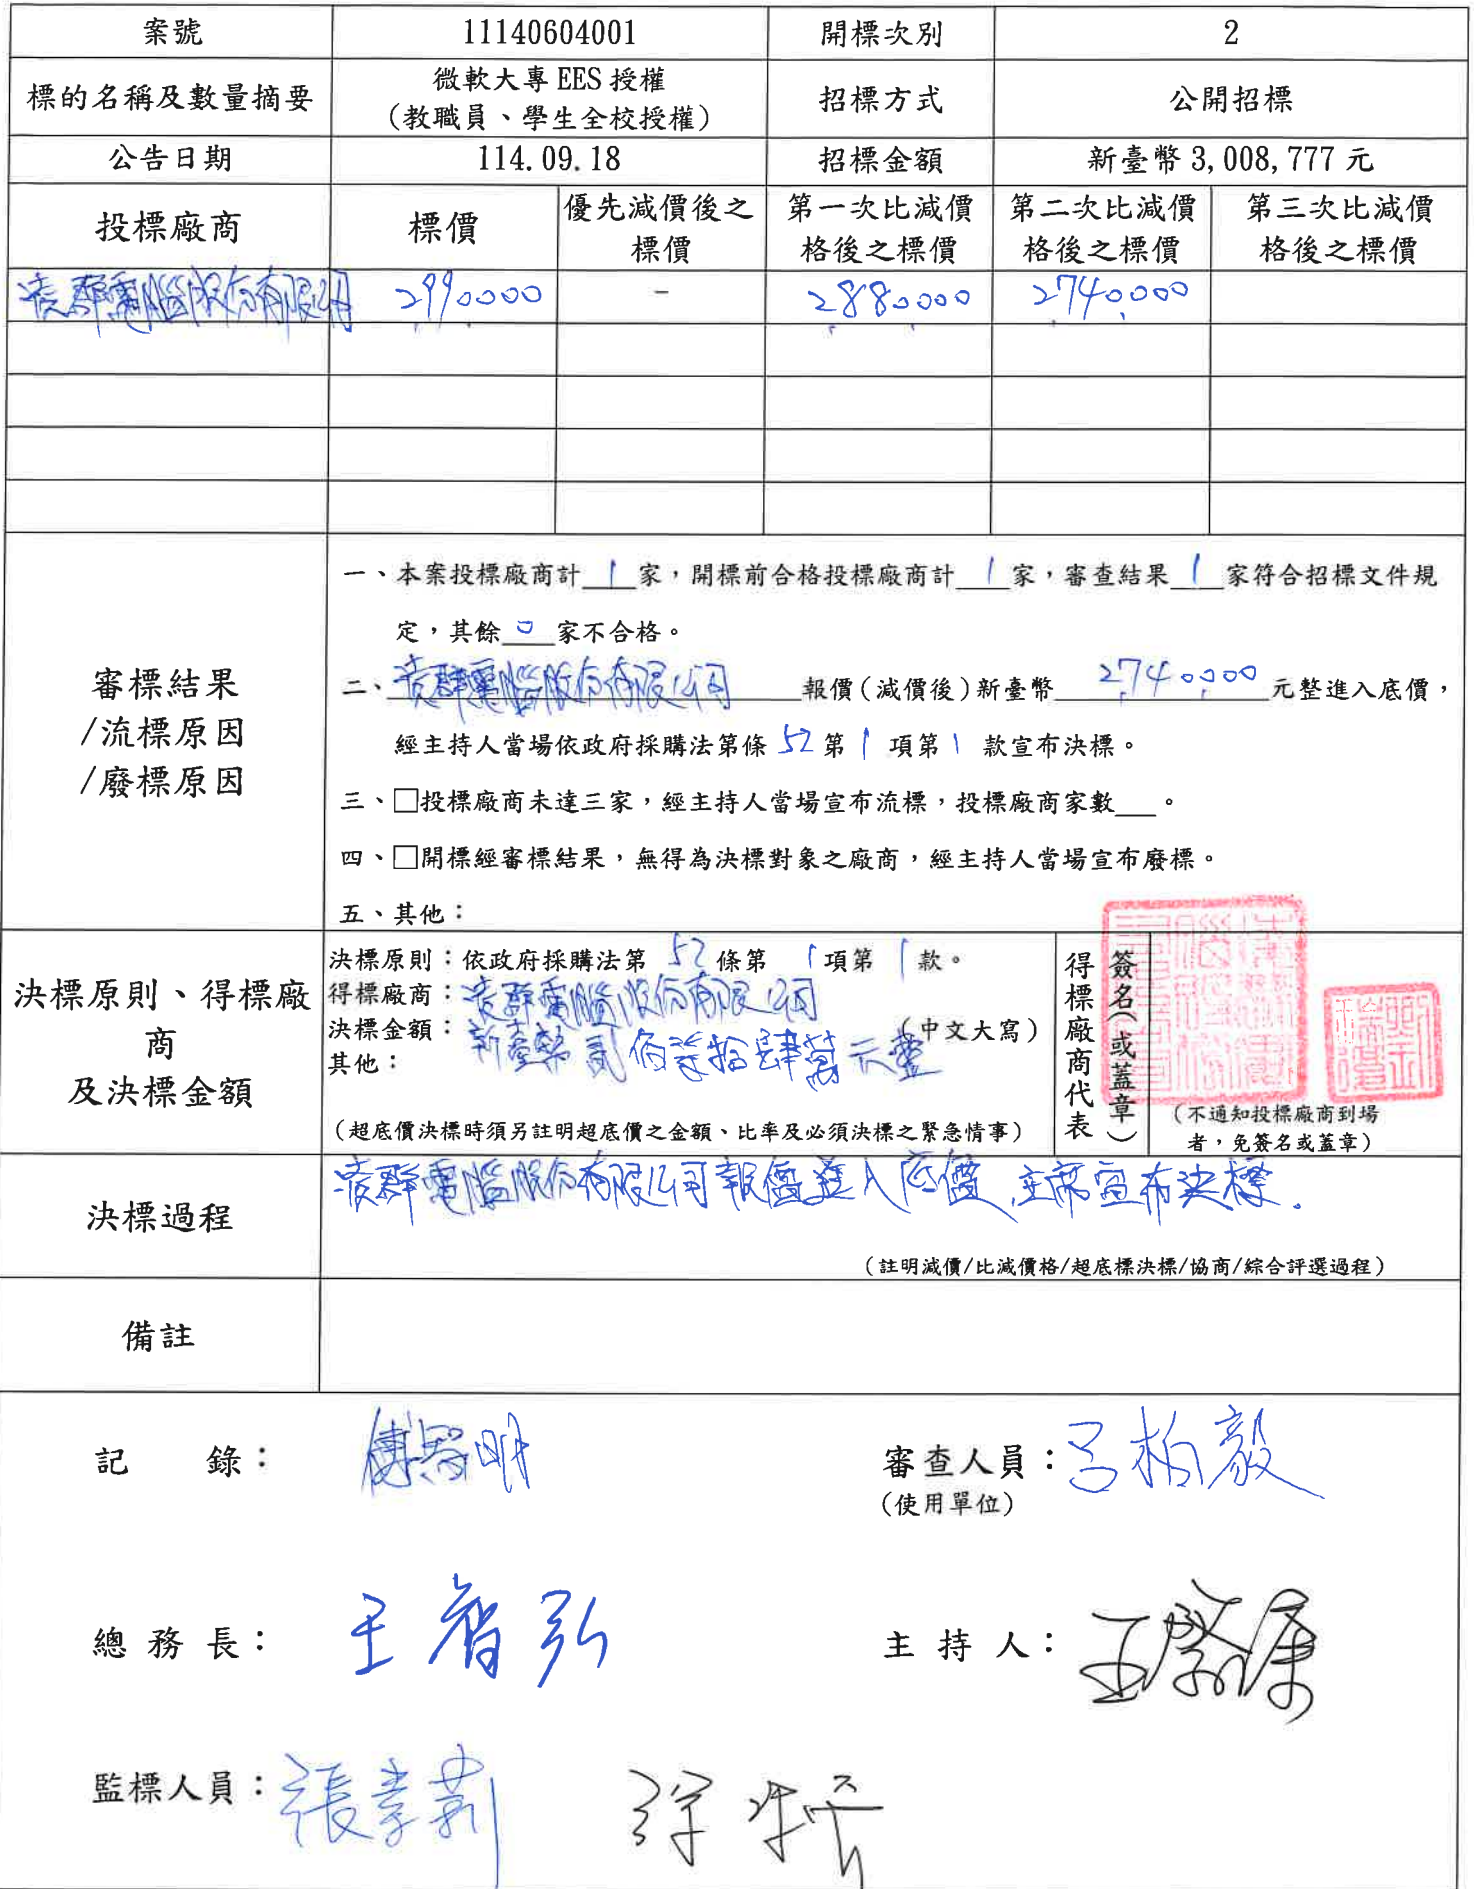 案號 11140604001 開標次別 2
標的名稱及數量摘要 微軟大專 EES 授權 招標方式 公開招標
(教職員、學生全校授權)
公告日期 114.09.18 招標金額 新臺幣 3,008,777 元
投標廠商 標價 優先減價後之標價 第一次比減價格後之標價 第二次比減價格後之標價 第三次比減價格後之標價
凌群電腦股份有限公司 2,990,000 - 2,880,000 2,740,000
審標結果
/流標原因
/廢標原因
一、本案投標廠商計 1 家,開標前合格投標廠商計 1 家,審查結果 1 家符合招標文件規
定,其餘 0 家不合格。
二、凌群電腦股份有限公司 報價(減價後)新臺幣 2,740,000 元整進入底價,
經主持人當場依政府採購法第條 52 第 1 項第 1 款宣布決標。
三、□投標廠商未達三家,經主持人當場宣布流標,投標廠商家數___。
四、□開標經審標結果,無得為決標對象之廠商,經主持人當場宣布廢標。
五、其他:
決標原則、得標廠
商
及決標金額
決標原則:依政府採購法第 52 條第 1 項第 1 款。
得標廠商:凌群電腦股份有限公司
決標金額:新臺幣貳佰柒拾肆萬元整 (中文大寫)
其他:
(超底價決標時須另註明超底價之金額、比率及必須決標之緊急情事)
得標廠商代表
簽名(或蓋章)
(不通知投標廠商到場
者,免簽名或蓋章)
決標過程 凌群電腦股份有限公司報價進入底價,主席宣布決標.
(註明減價/比減價格/超底標決標/協商/綜合評選過程)
備註
記 錄: 審查人員:呂柏毅
(使用單位)
總 務 長:王智弘 主 持 人:
監標人員: